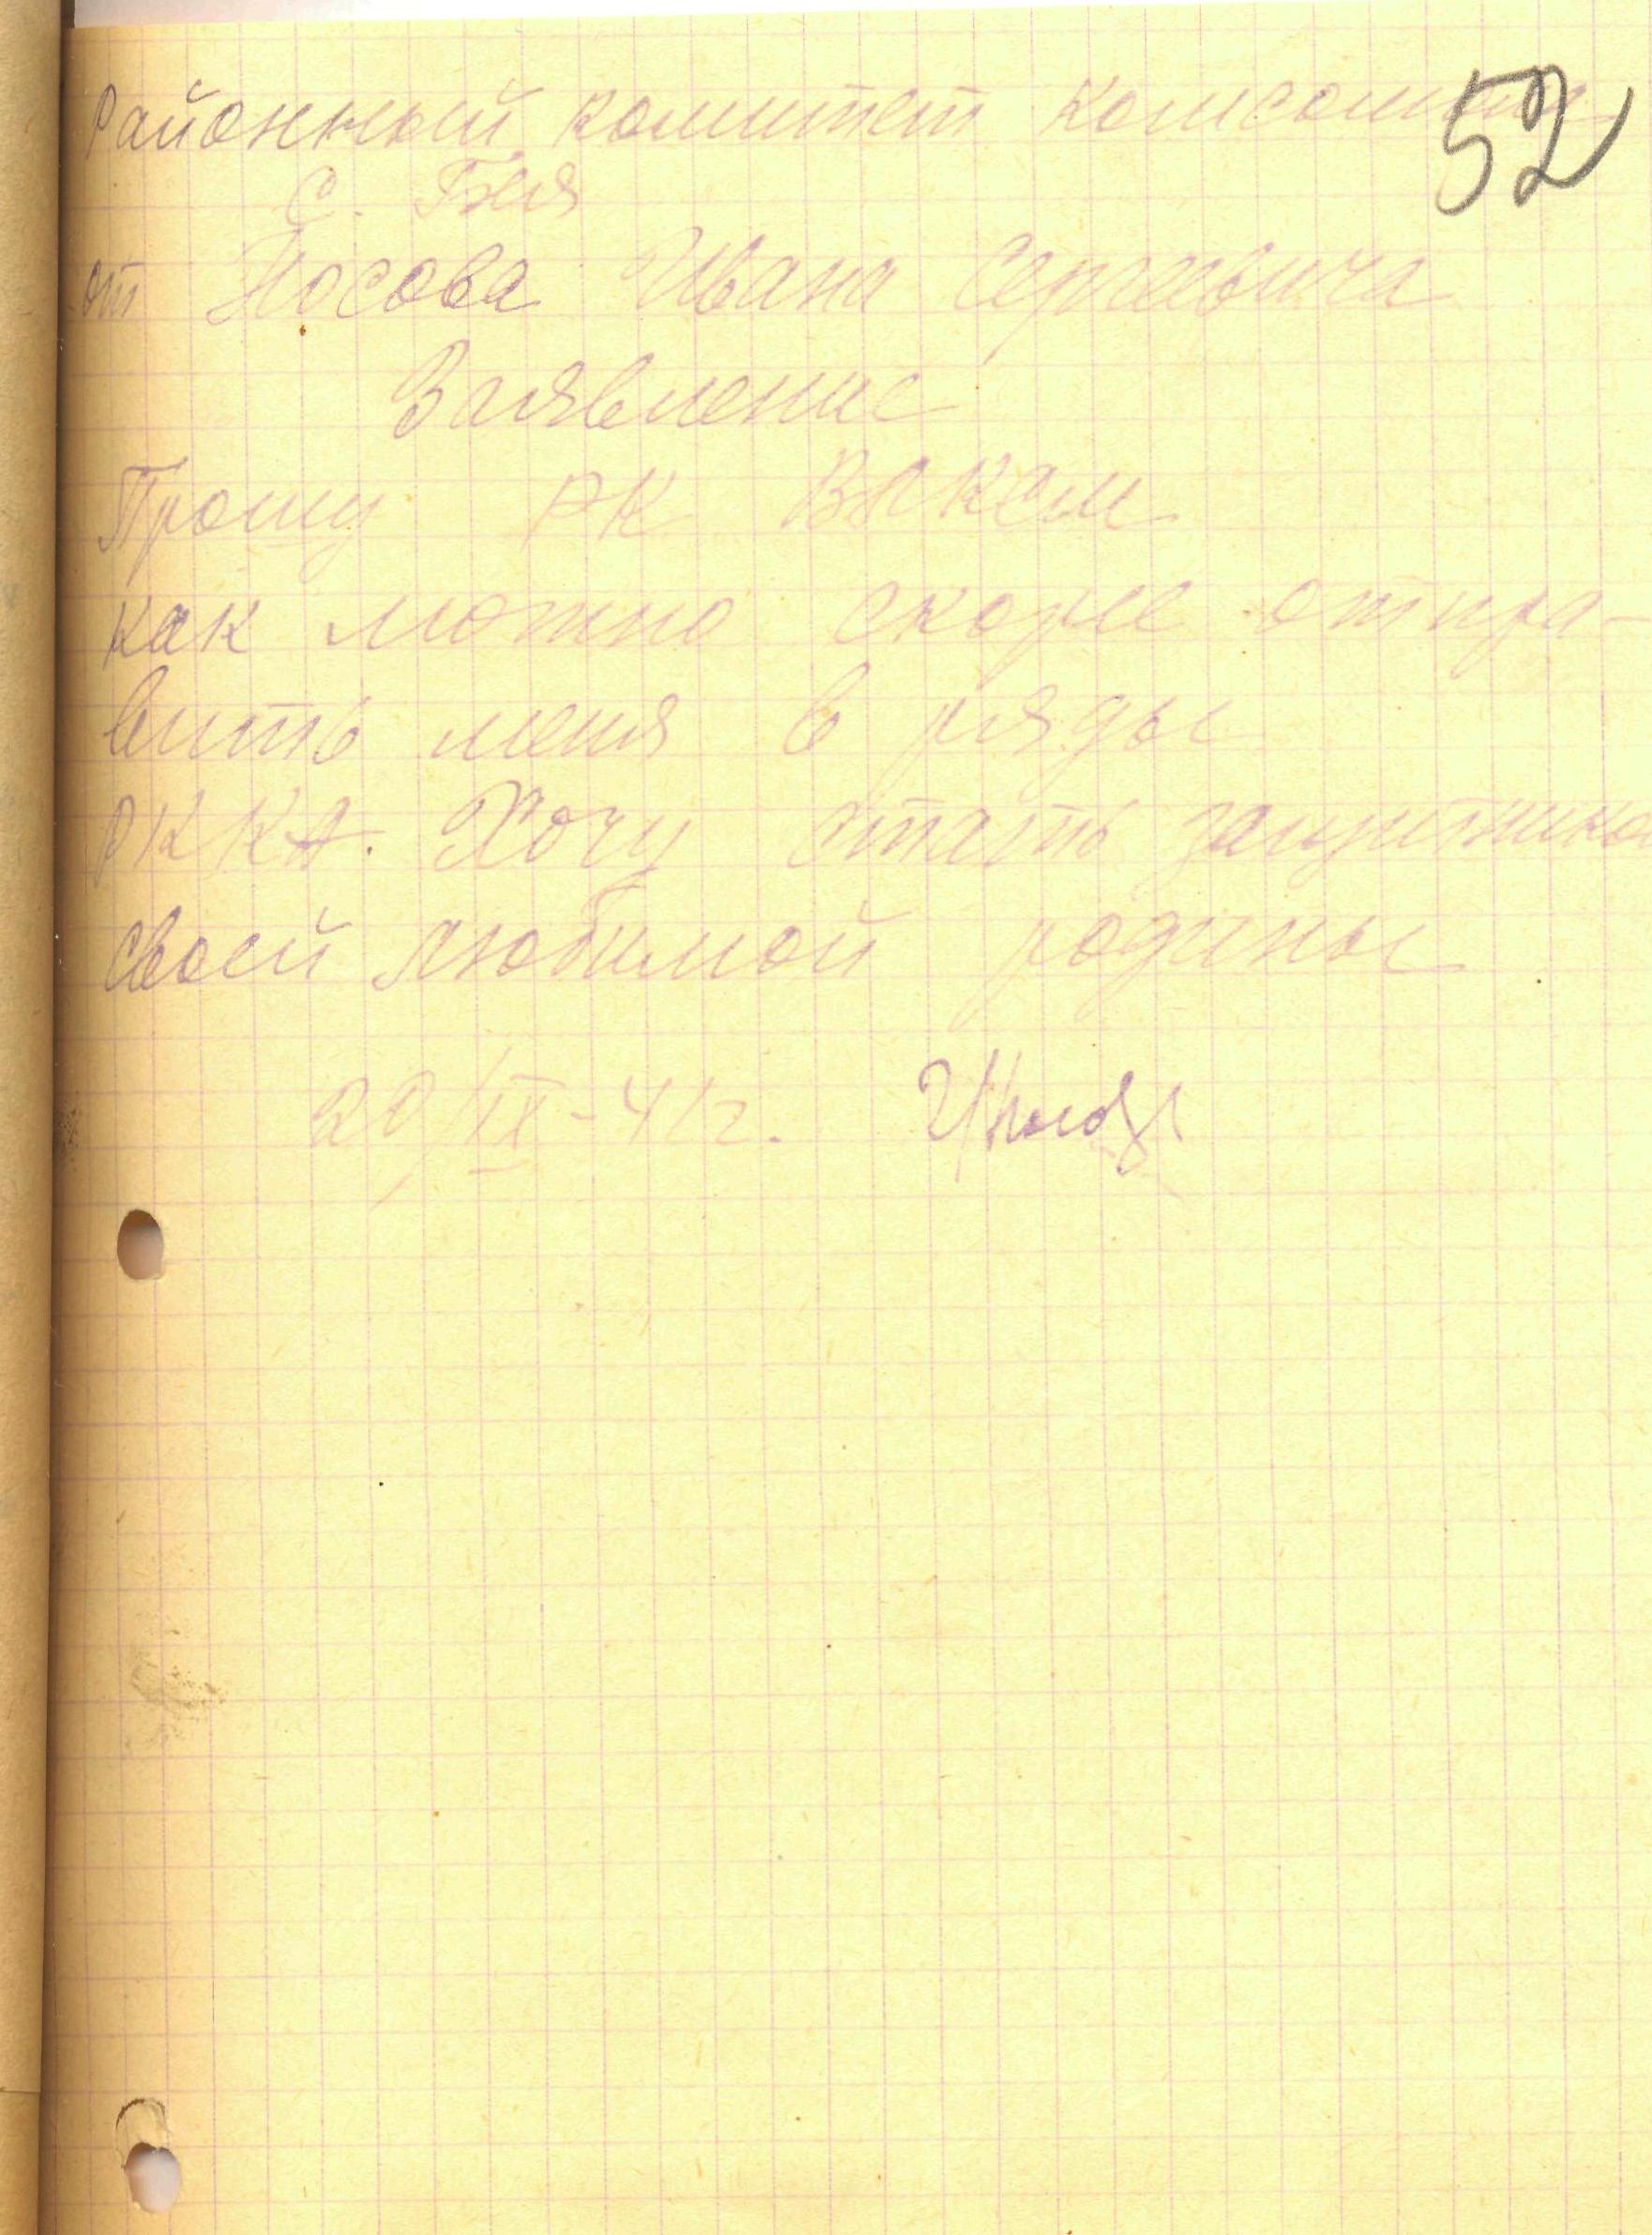 52
Районный комитет комсомола
с. Бея
от Носова Ивана Сергеевича
Заявление
Прошу РК ВЛКСМ
как можно скорее отпра-
вить меня в ряды
РККА. Хочу стать защитником
своей любимой родины
20/IX-41г.